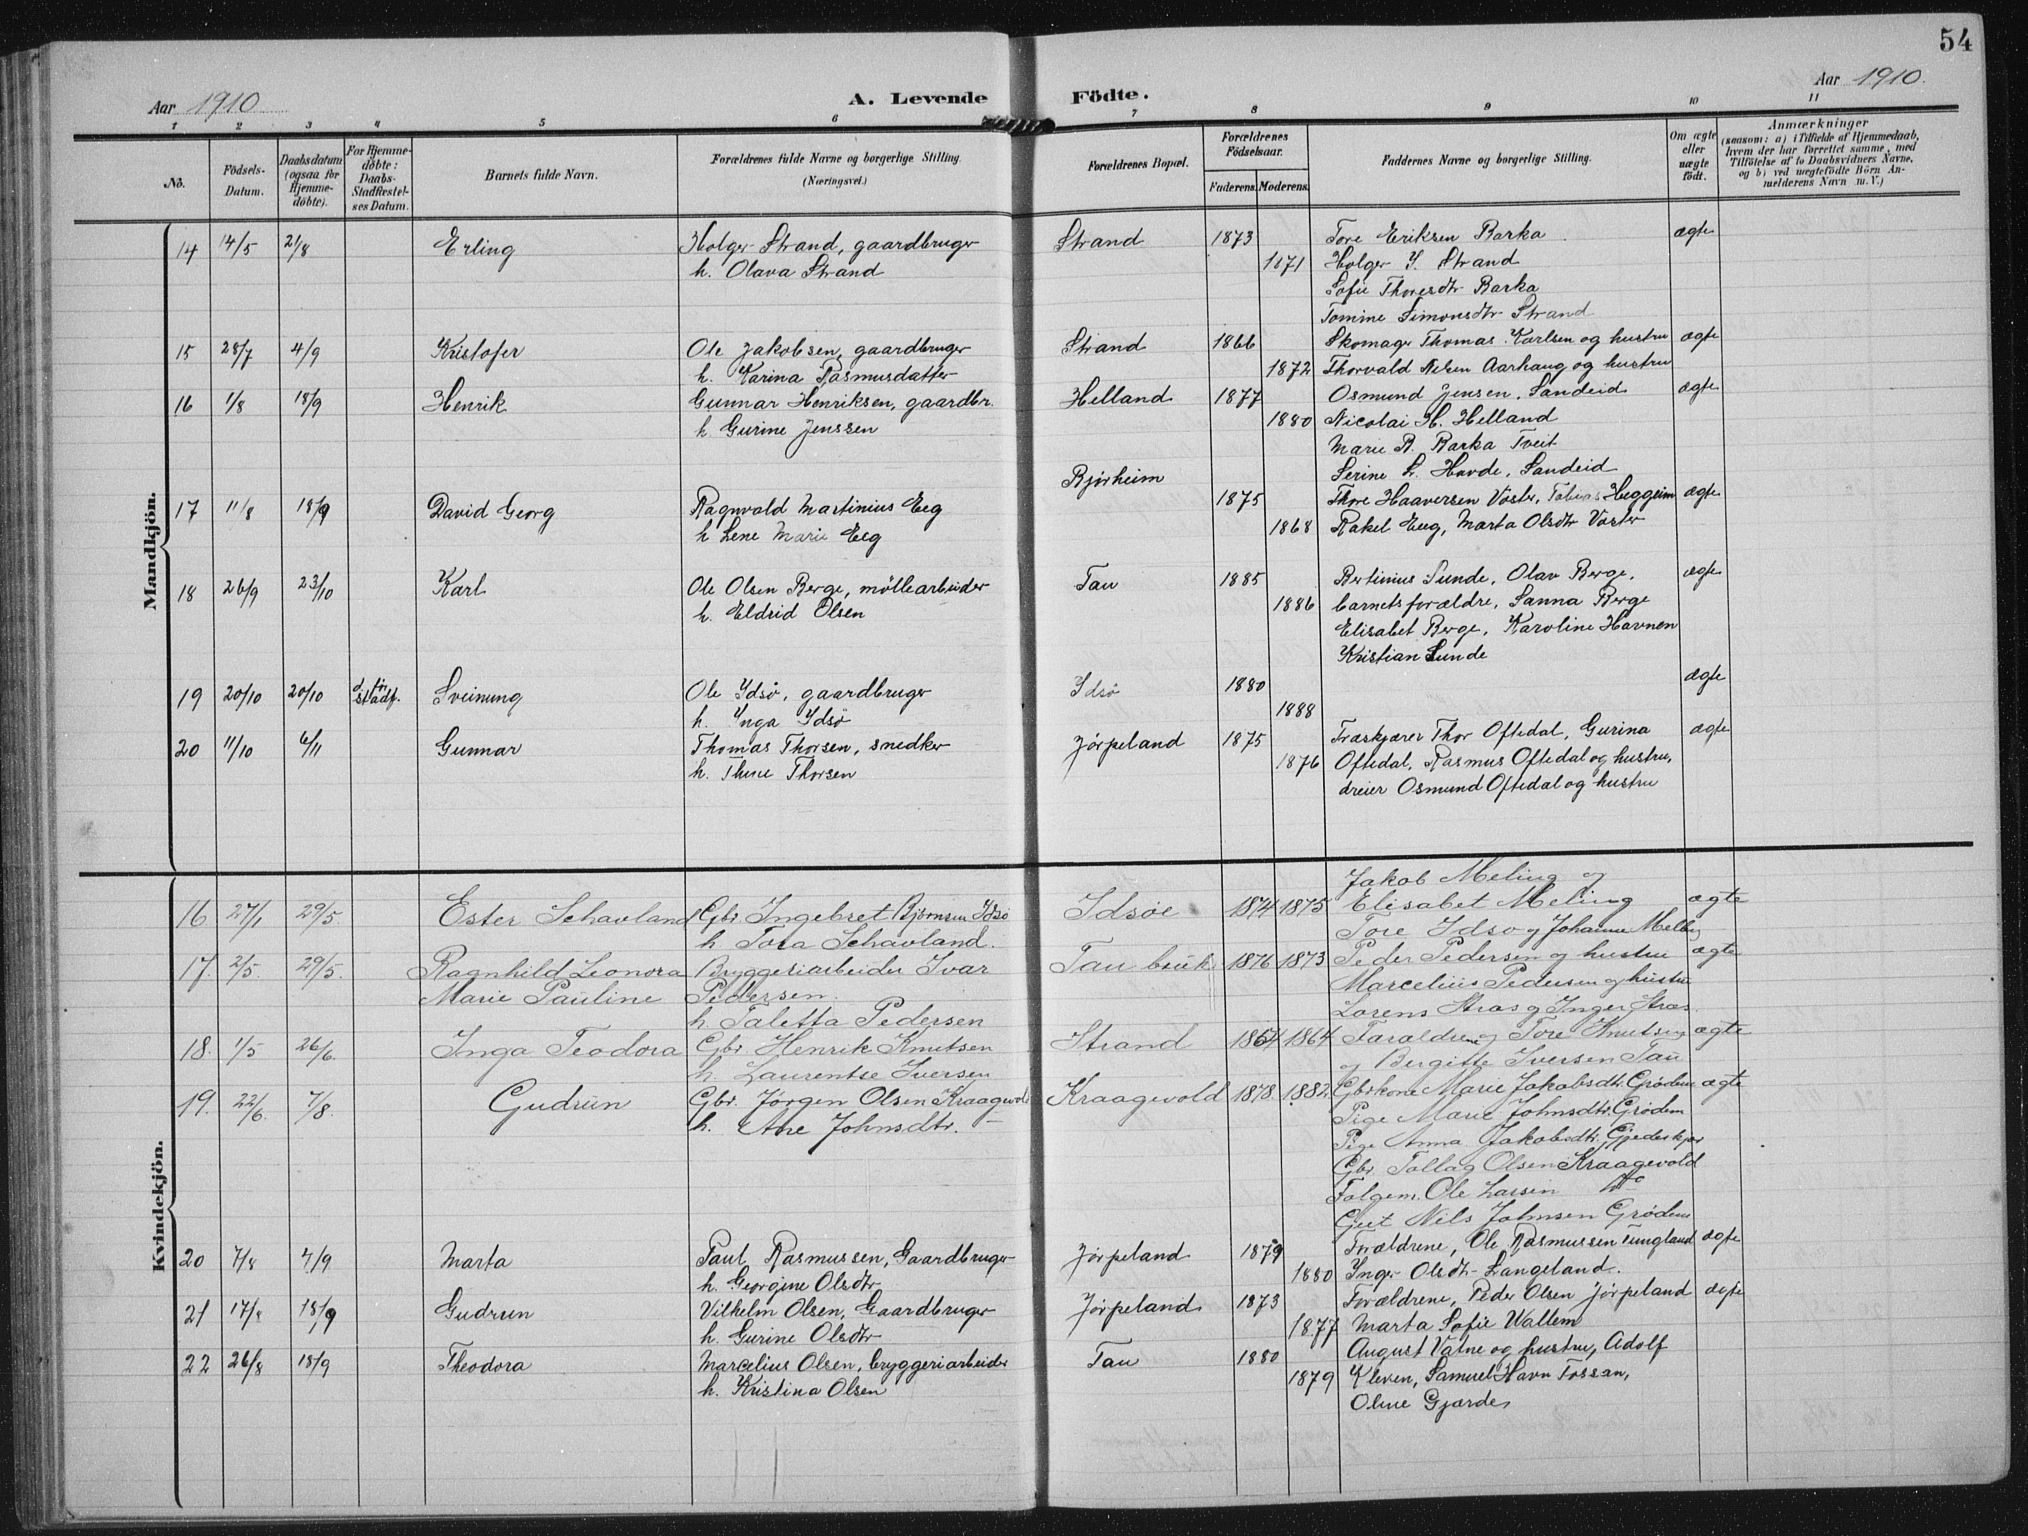 54
Aar 1910
A. Levende Födte.
Aar 1910.
1 2 3 4 5 6 7 8 9 10 11
No.
Födsels-Datum.
Daabsdatum (ogsaa for Hjemme-döbte).
For Hjemme-döbte: Daabs-Stadfæstel-ses Datum.
Barnets fulde Navn.
Forældrenes fulde Navne og borgerlige Stilling.
(Næringsvei.)
Forældrenes Bopæl.
Forældrenes Födselsaar.
Faderens. Moderens.
Faddernes Navne og borgerlige Stilling.
Om ægte eller uægte födt.
Anmærkninger
(saasom: a) i Tilfælde af Hjemmedaab, hvem der har forrettet samme, med Tilföielse af to Daabsvidners Navne, og b) ved uægtefödte Börn An-melderens Navn m. V.)
Mandkjön.
14 14/5 21/8 Erling Holger Strand, gaardbruger Strand 1873 Tore Eriksen Barka ægte
h. Olava Strand 1871 Holger Y. Strand
Sofie Thoresdtr Barka
Tomine Simonsdtr Strand
15 28/7 4/9 Kristofer Ole Jakobsen, gaardbruger Strand 1866 Skomager Thomas Karlsen og hustru ægte
h. Karina Rasmusdatter 1872 Thorvald Nilsen Aarhaug og hustru
16 1/8 18/9 Henrik Gunnar Henriksen, gaardbr. Helland 1877 Osmund Jensen, Sandeid ægte
h. Gurine Jenssen 1880 Nicolai H. Helland
Marie B. Barka Tveit
Serine S. Hovde, Sandeid
17 11/8 18/9 David Georg Ragnvald Martinius Eeg Bjørheim 1875 Thore Haaversen Voster, Tobias Heggeim ægte
h Lene Marie Eeg 1868 Rakel Eeg, Marta Olsdtr Voster
18 26/9 23/10 Karl Ole Olsen Berge, møllearbeider Tau 1885 Bertinius Sunde, Olav Berge, ægte
h. Eldrid Olsen 1886 barnets forældre, Sanna Berge
Elisabet Berge, Karoline Havnen
Kristian Sunde
19 20/10 20/10 stadf. Sveinung Ole Idsø, gaardbruger Idsø 1880 ægte
h. Inga Idsø 1888
20 11/10 6/11 Gunnar Thomas Thorsen, snedker Jørpeland 1875 Træskjærer Thor Oftedal, Gurina ægte
h. Thine Thorsen 1876 Oftedal, Rasmus Oftedal og hustru,
dreier Osmund Oftedal og hustru
Kvindekjön.
Jakob Meling og
16 27/1 29/5. Ester Schavland Gbr. Ingebret Bjørnsen Idsø Idsøe 1874 1875 Elisabet Meling ægte
h Tora Schavland. Tore Idsø og Johanne Melby
17. 2/5 29/5. Ragnhild Leonora Bryggeriarbeider Ivar Tau bruk 1876 1873 Peder Pedersen og hustru ægte
Marie Pauline Pedersen. Marcelius Pedersen og hustru
h. Taletta Pedersen Lorens Aras og Inger Aras.
18. 1/5 26/6. Inga Teodora Gbr. Henrik Knutsen Strand 1864 1864 Forældrene og Tore Knutsen ægte
h. Laurentse Iversen og Birgitte Iversen Tau
19. 22/6. 7/8. Gudrun Gbr. Jörgen Olsen Kraagevold Kraagevold 1878. 1882. Gbrkone Marie Jakobsdtr. Grødem ægte
h. Ane Johnsdtr. Pige Marie Johnsdtr. Grødem
Pige Anna Jakobsdtr.
Gbr. Tollag Olsen Kraagevold
Ole Larsen
Gut Nils Johnsen Grødem
20 7/8 4/9 Marta Paul Rasmussen, Gaardbruger Jørpeland 1879 Forældrene, Ole Rasmussen Tungland ægte
h. Georgine Olsdtr 1880 Inger Olsdtr Langeland.
21 17/8 18/9 Gudrun Vilhelm Olsen, Gaardbruger Jørpeland 1873 Forældrene, Peder Olsen Jörpeland ægte
h. Gurine Olsdtr 1877 Marta Sofie Wallem
22 26/8 18/9 Theodora Marcelius Olsen, bryggeriarbeider Tau 1880 August Vatne og hustru, Adolf
h. Kristina Olsen 1879 Kleven, Samuel Havn Fossan,
Oline Gjærde